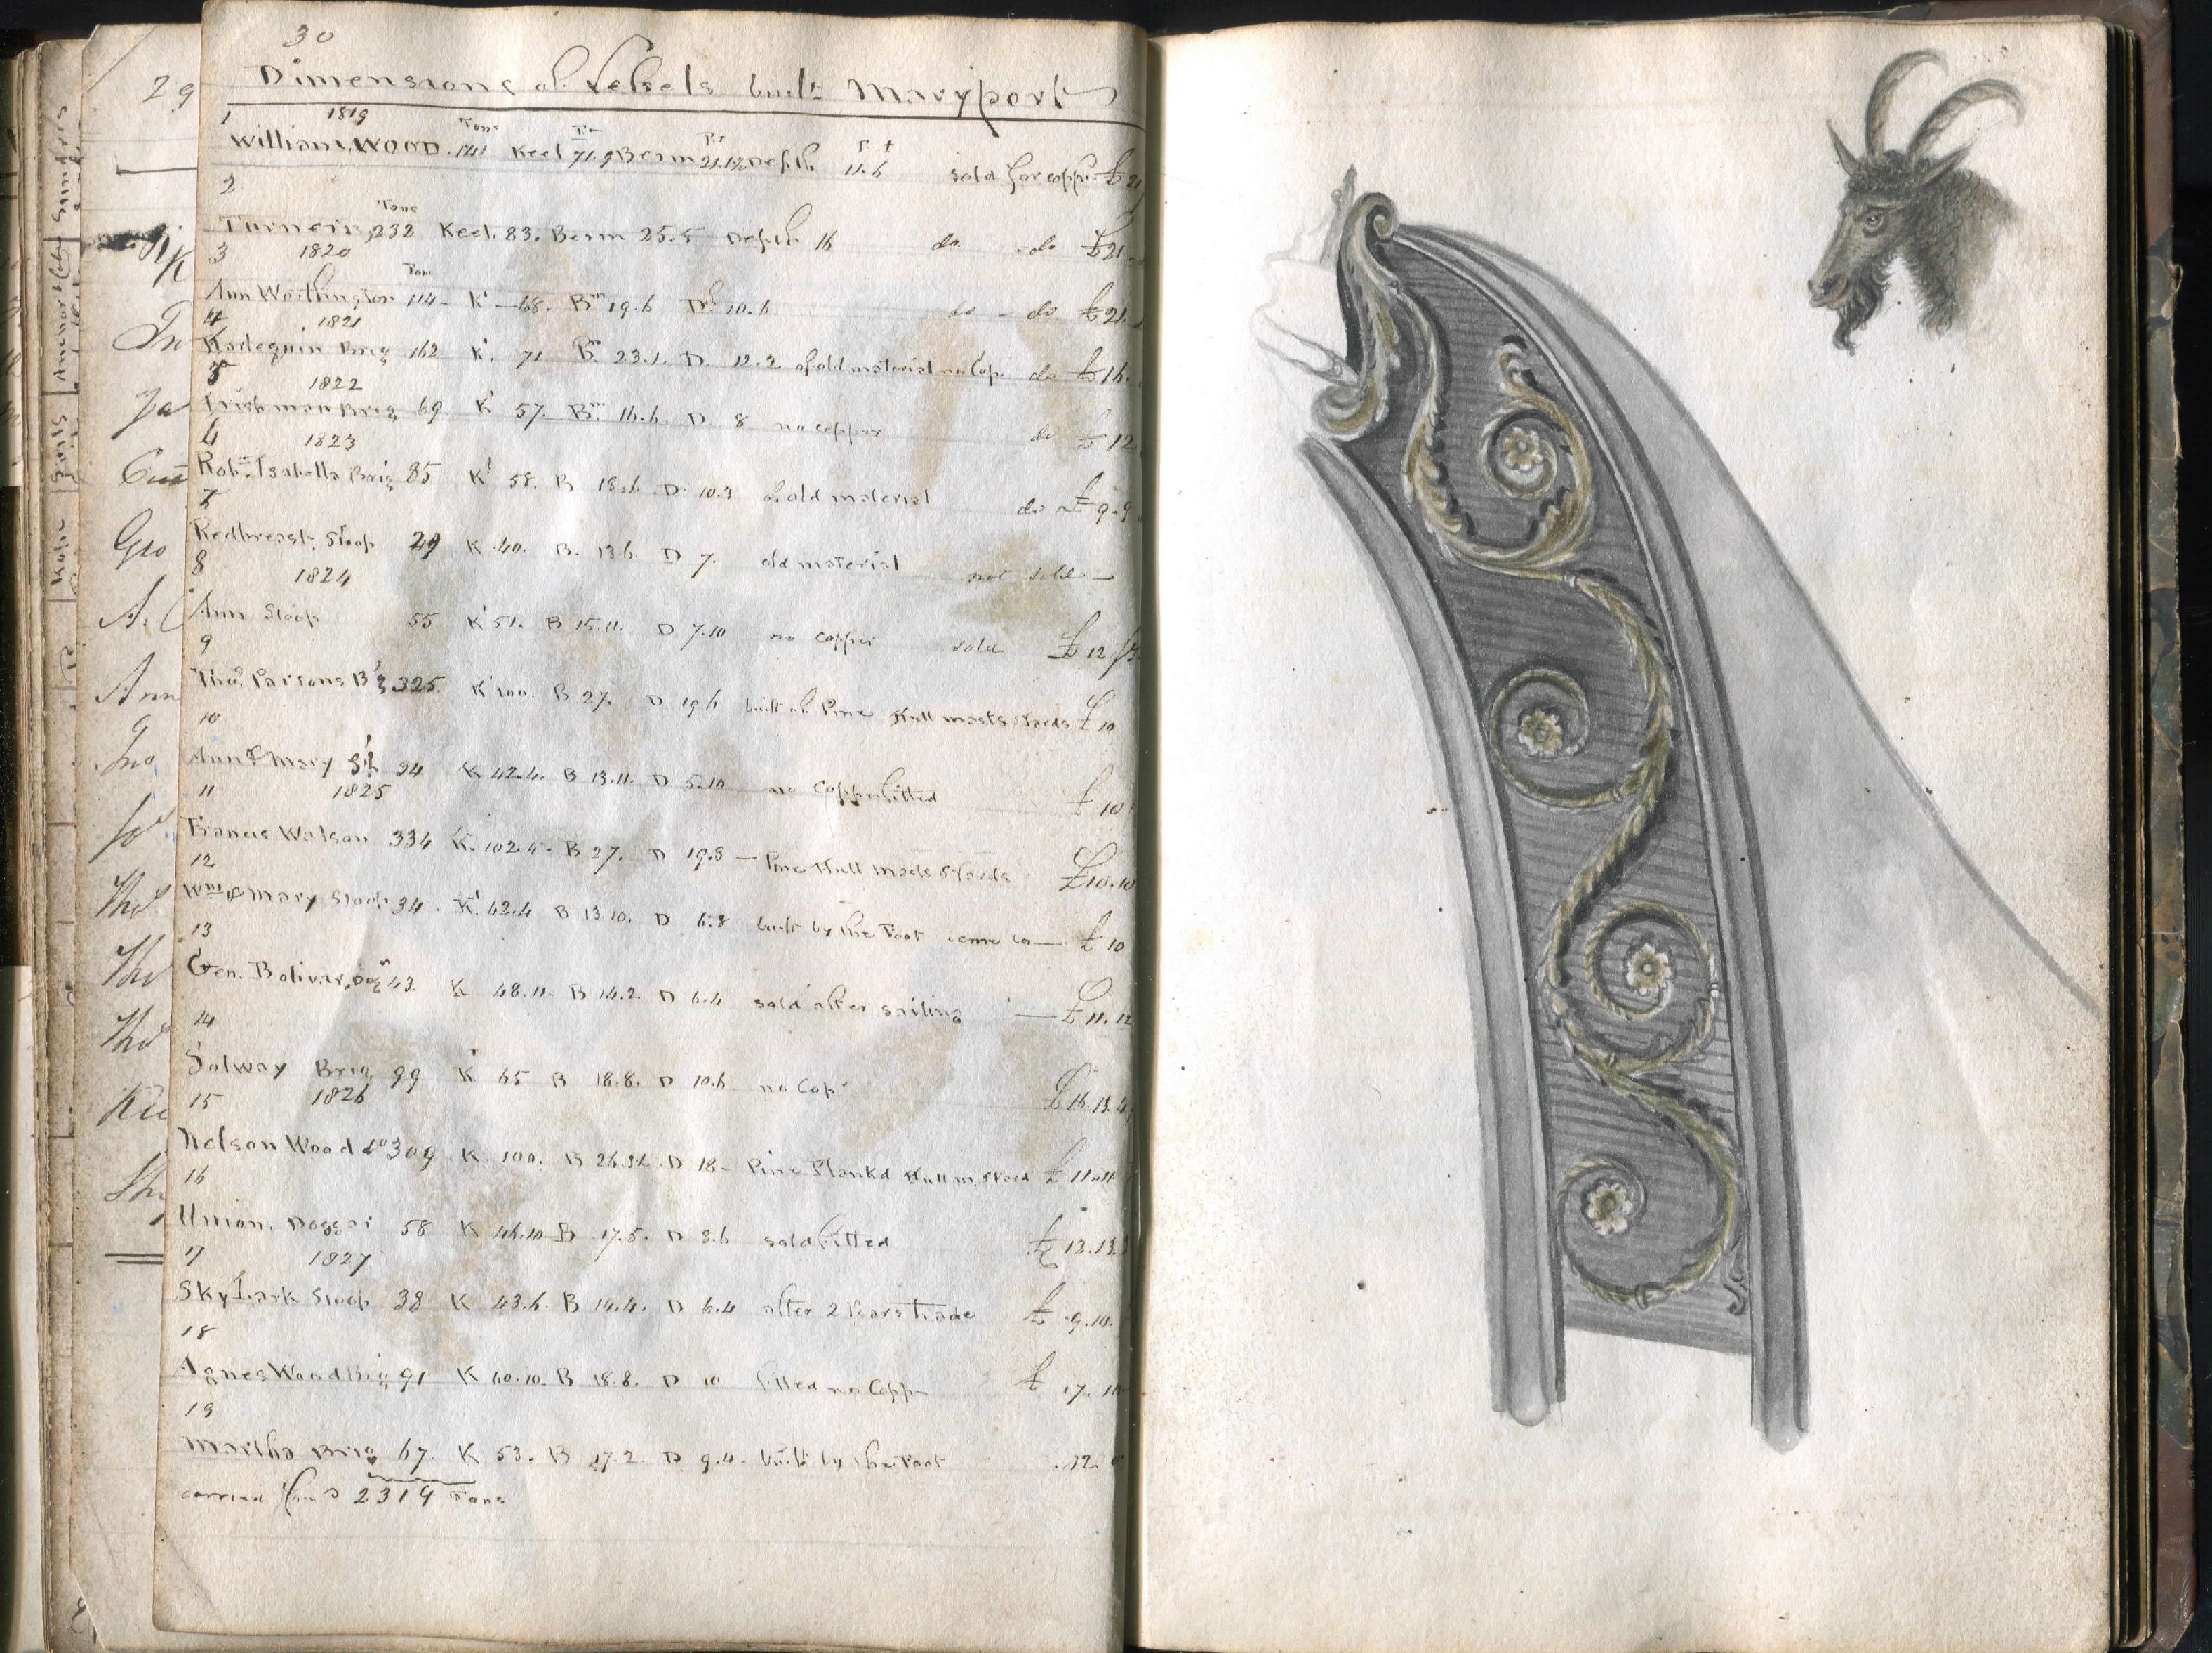 29
30
Dimensions of Vessels built Maryport
1 1819
William Wood Tons 141 Keel 71.9 Beam Depth 11.6 sold for copper £ 21
2
Turner 232 Tons Keel. 83. Beam 25.5 Depth 16 do - do £21
3 1820
Ann Worthington 114 Tons K - 68. Bm 19.6 D 10.6 do - do £21.
4 1821
Harlequin Brig 162 K. 71 Bm 23.1. D. 12.2 of old material no Cop. do £16.
5 1822
Irishman Brig 69 K 57. Bm. 16.6. D 8 no copper do £12
6 1823
Robt. Isabella Brig 85 K 58. B 18.6. D. 10.3 of old material do £9.9
7
Redbreast. Sloop 29 K 40. B. 13.6. D 7. old material not sold -
8 1824
Ann Sloop 55 K 51. B 15.11. D 7.10 no copper sold £12
9
Thos. Parsons Bg 325. K 100. B 27. D 19.6 built of Pine Hull masts & Yards £10
10
Ann & Mary Slp 34 K 42.4. B 13.11. D 5.10 no Copper fitted £10
11 1825
Francis Watson 334 K. 102.4 - B 27. D 19.8 - Pine Hull masts & Yards £10.10
12
Wm & Mary Sloop 34. K. 42.4 B 13.10. D 6.8 built by the Foot £10
13
Gen. Bolivar, 43. K 48.11 - B 14.2. D 6.4 sold after sailing - £11.12
14
Solway Brig 99 K 65 B 18.8. D 10.6 no Cop. £16.13.4
15 1826
Nelson Wood 309 K. 100. B D 18 - Pine Plankd Hull £11
16
Union. Dogger 58 K 46.10 - B 17.5. D 8.6 sold fitted £12.13.
17 1827
SkyLark Sloop 38 K 43.6. B 14.4. D 6.4 after 2 Years trade £9.10.
18
Agnes Wood Brig 91 K 60.10. B 18.8. D 10 fitted no Copper £17.10
19
Martha Brig 67. K 53. B 17.2. D 9.4. built by the Foot .12.
carried 2314 Tons